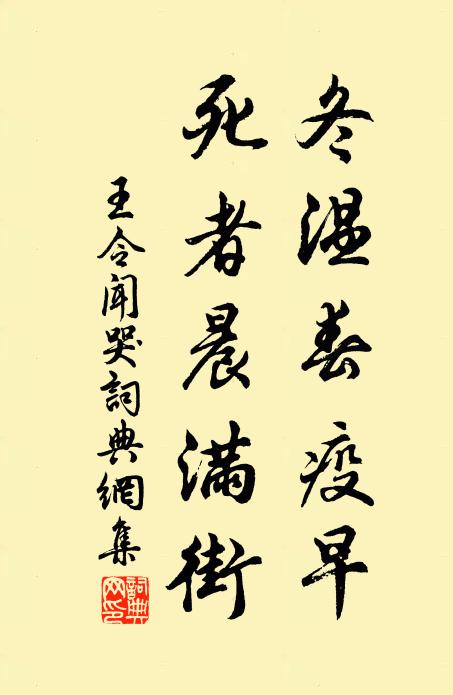 冬温春疫早
死者晨满街
王令闻哭詞典網集
詞典网印